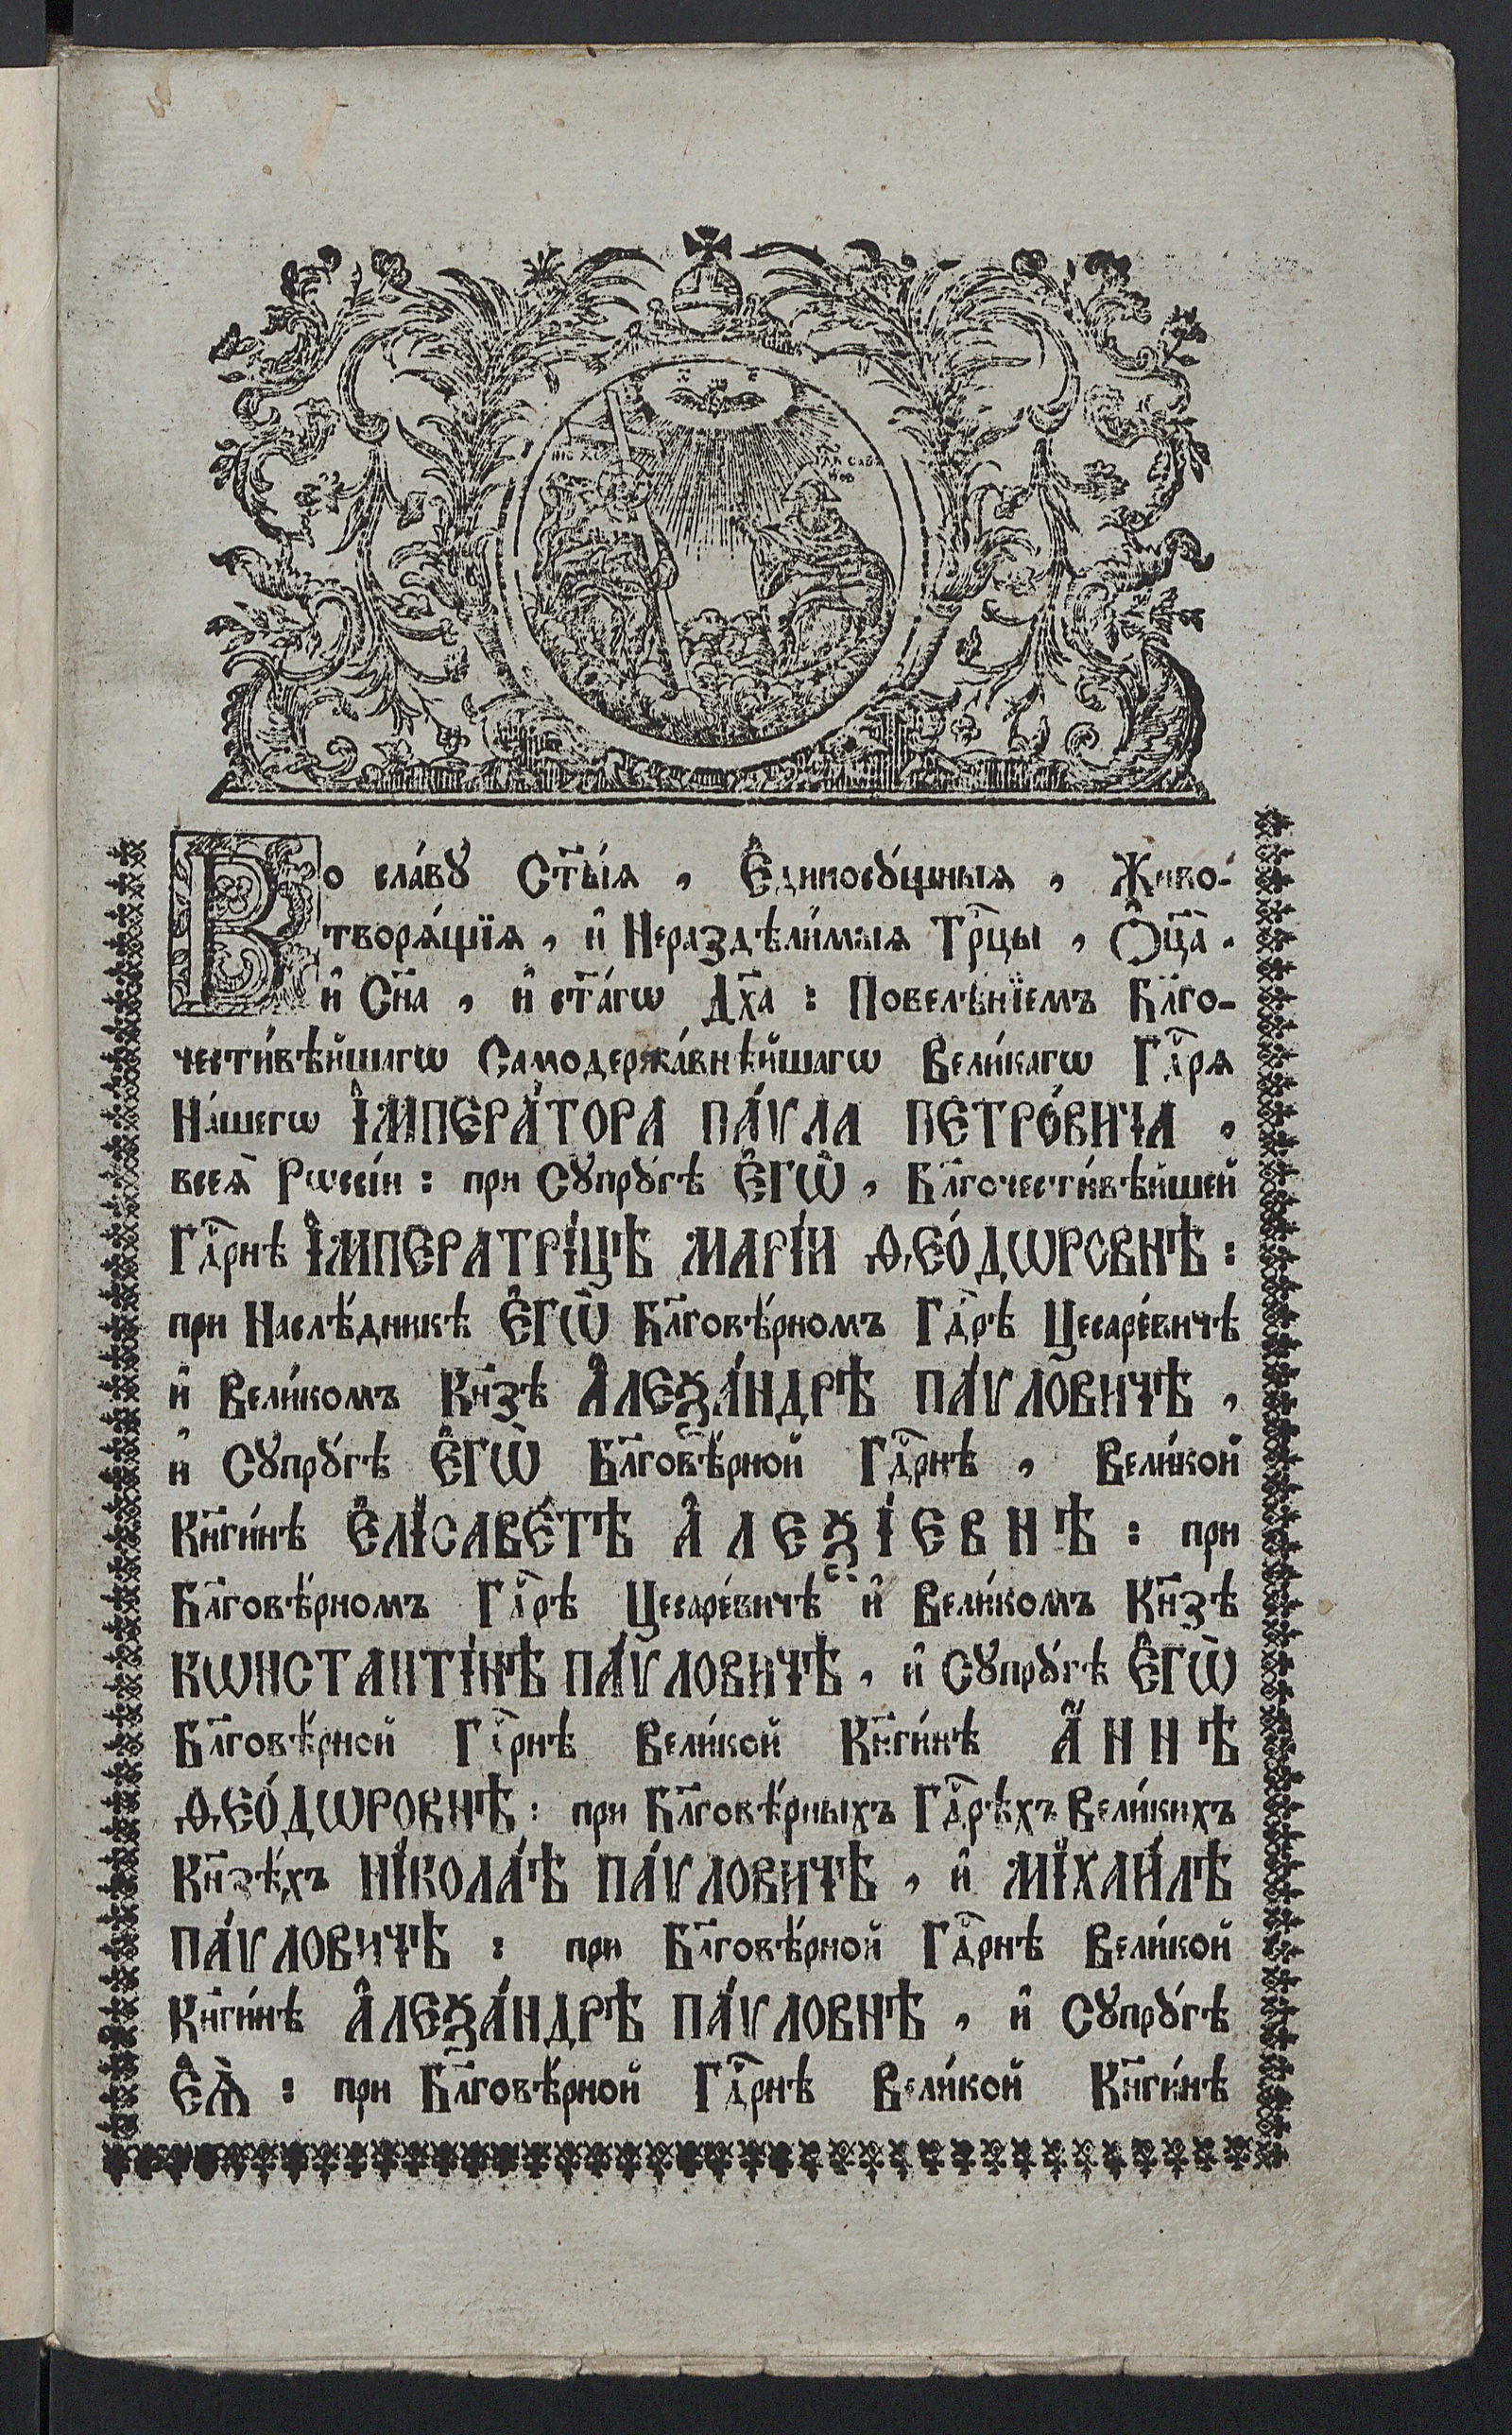 Во сла́вꙋ Ст҃ы́ѧ , Є҆диносꙋ́щныѧ , Живо-
творѧ́щїѧ , и҆ Нераздѣли́мыѧ Трⷪ҇цы , Ѻ҆ц҃а̀ .
и҆ Сн҃а , и҆ ст҃а́гѡ Дх҃а : Повелѣ́нїемъ Бл҃го-
чести́вѣйшагѡ Самодержа́внѣйшагѡ Вели́кагѡ Гдⷭ҇рѧ
На́шегѡ І҆МПЕРА́ТОРА ПА́ѴЛА ПЕТРО́ВИЧА ,
всеѧ̀ Рѡссі́и : при Сꙋпрꙋ́гѣ Є҆ГѠ̀ , Бл҃гочести́вѣйшей
Гдⷭ҇рнѣ І҆МПЕРАТРІ́ЦѢ МАРІ́И Ѳ̈ЕО́ДѠРОВНѢ :
при Наслѣ́дникѣ Є҆ГѠ̀ Бл҃говѣ́рномъ Гдⷭ҇рѣ Цесаре́вичѣ
и҆ Вели́комъ Кн҃зѣ А҆ЛЕѮА́НДРѢ ПА́ѴЛОВИЧѢ ,
и҆ Сꙋпрꙋ́гѣ Є҆ГѠ̀ Бл҃говѣ́рной Гдⷭ҇рнѣ , Вели́кой
Кн҃ги́нѣ Є҆ЛІСАВЕ́ТѢ А҆ЛЕѮІ́ЕВНѢ : при
Бл҃говѣ́рномъ Гдⷭ҇рѣ Цесаре́вичѣ и҆ Вели́комъ Кн҃зѣ
КѠНСТАНТІ́НѢ ПА́ѴЛОВИЧѢ , и҆ Сꙋпрꙋ́гѣ Є҆ГѠ̀
Бл҃говѣ́рной Гдⷭ҇рнѣ Вели́кой Кн҃ги́нѣ А҆́ННѢ
ѲЕО́ДѠРОВНѢ : при Бл҃говѣ́рныхъ Гдⷭ҇рѣхъ Вели́кихъ
Кн҃зѣ́хъ НІКОЛА́Ѣ ПА́ѴЛОВИЧѢ , и҆ МІХАИ́ЛѢ
ПА́ѴЛОВИЧѢ : при Бл҃говѣ́рной Гдⷭ҇рнѣ Вели́кой
Кн҃ги́нѣ А҆ЛЕѮА́НДРѢ ПА́ѴЛОВНѢ , и҆ Сꙋпрꙋ́гѣ
Є҆Ѧ̀ : при Бл҃говѣ́рной Гдⷭ҇рнѣ Вели́кой Кн҃ги́нѣ